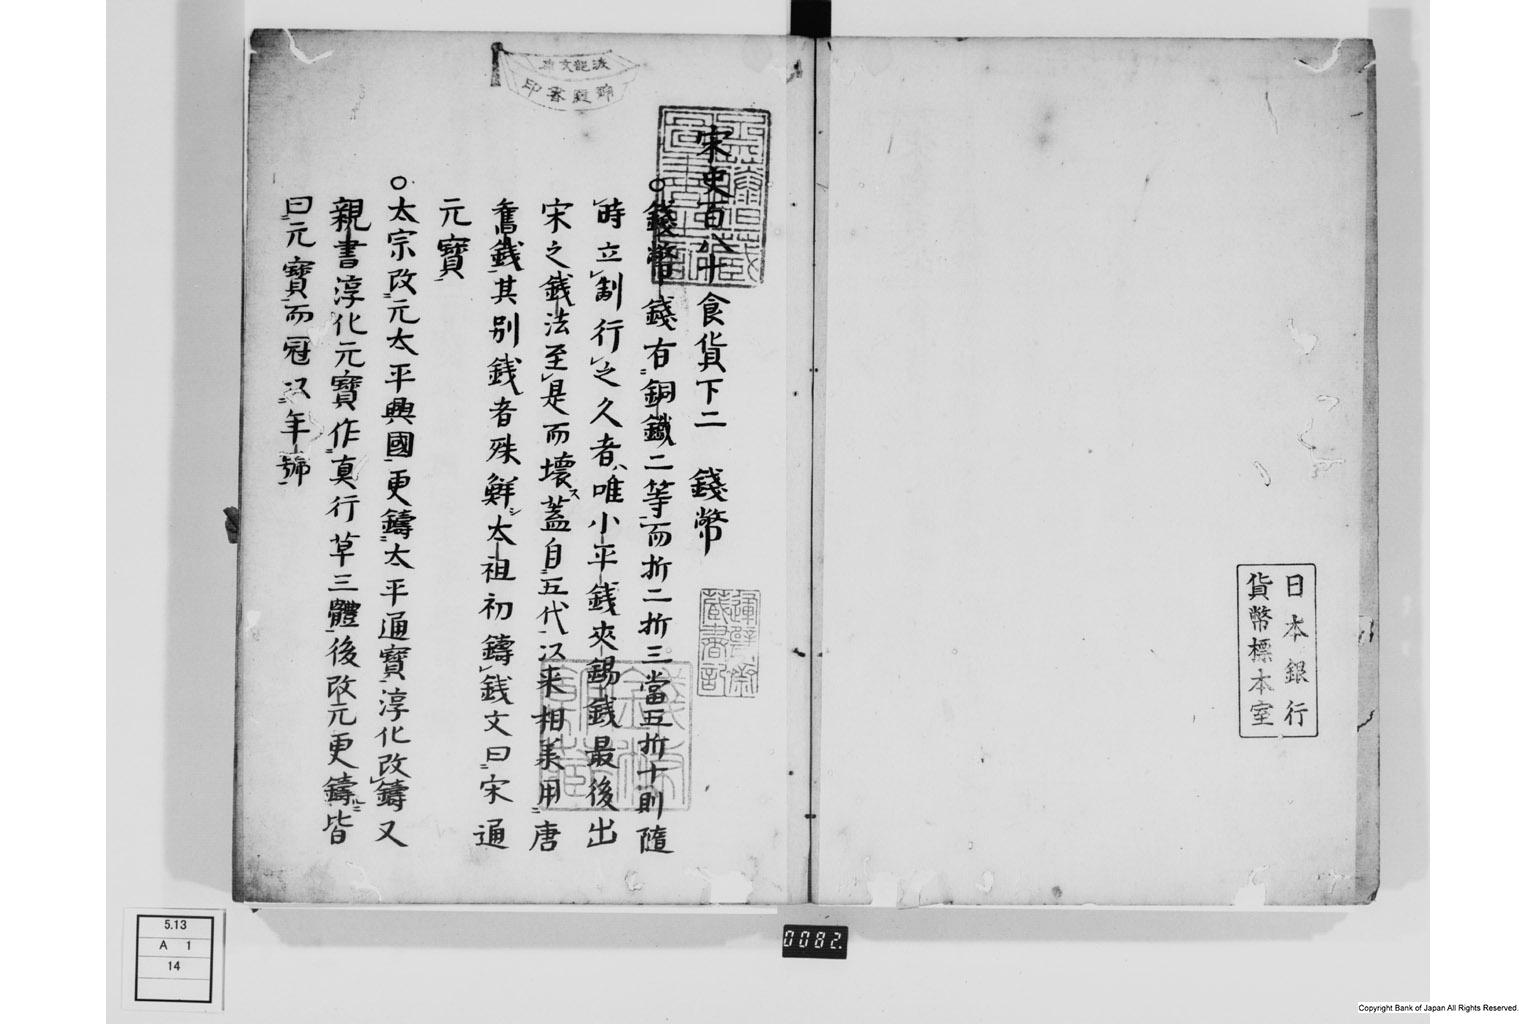 日本銀行
貨幣標本室
宋史百八十食貨下二　錢幣
○錢幣　錢有銅鐵二等而折二折三當五折十則隨
時立制行之久者唯小平銭夾錫銭最後出
宋之銭法至是而壞ス蓋自五代以来相義用唐
舊銭其別銭者殊鮮シ太祖初鑄銭文曰宋通
元寶
○太宗改元太平興國更鑄太平通寶淳化改鑄又
親書淳化元寶作真行草三體後改元更鑄皆
曰元寶而冠以年號
錢幣館印
運甓齋
蔵書記
0082.
5.13
A 1
14
Copyright Bank of Japan All Rights Reserved.